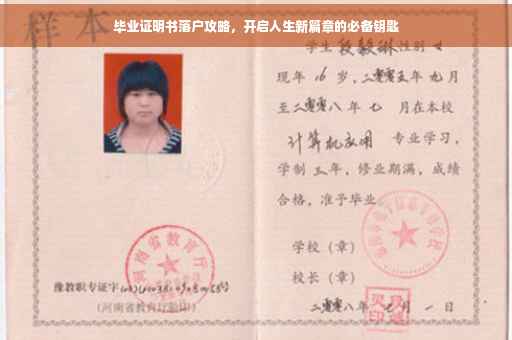 毕业证明书落户攻略，开启人生新篇章的必备钥匙
样本
学生 段毅琳 性别 女
现年 16 岁，二零零五年 九月
至二零零八年 七 月在本校
计算机应用 专业学习，
学制 三 年，修业期满，成绩
合格，准予毕业
学校（章）
校长（章）
二零零八年 七 月 一 日
河南省教育厅
豫教职专证字
（河南省教育厅验印）